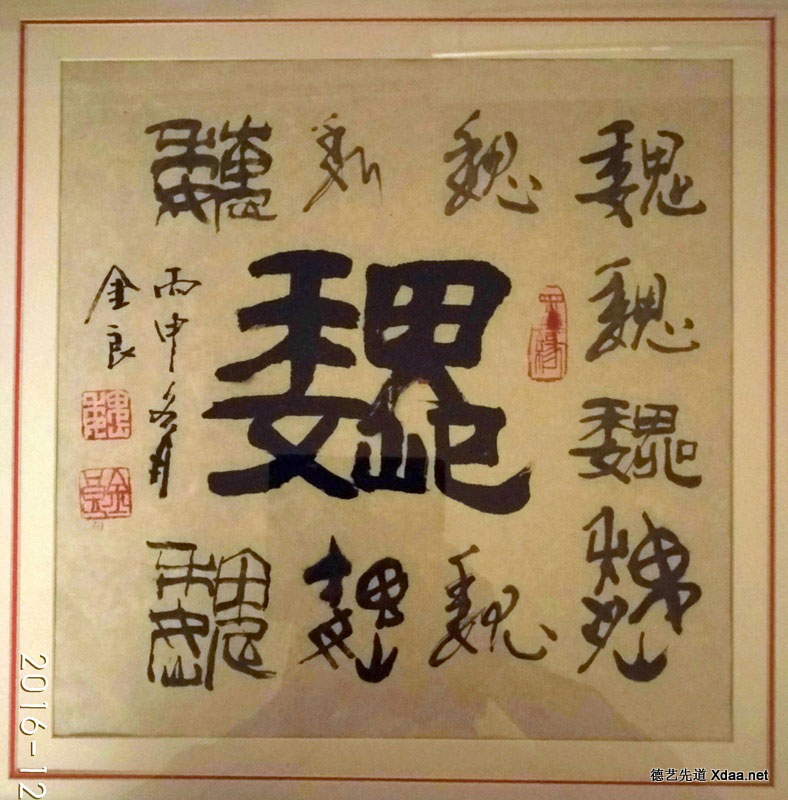 魏 魏 魏 魏
魏
魏
魏
魏 魏 魏 魏
丙申冬月
金良
魏
金良
2016-12
德艺先道 Xdaa.net